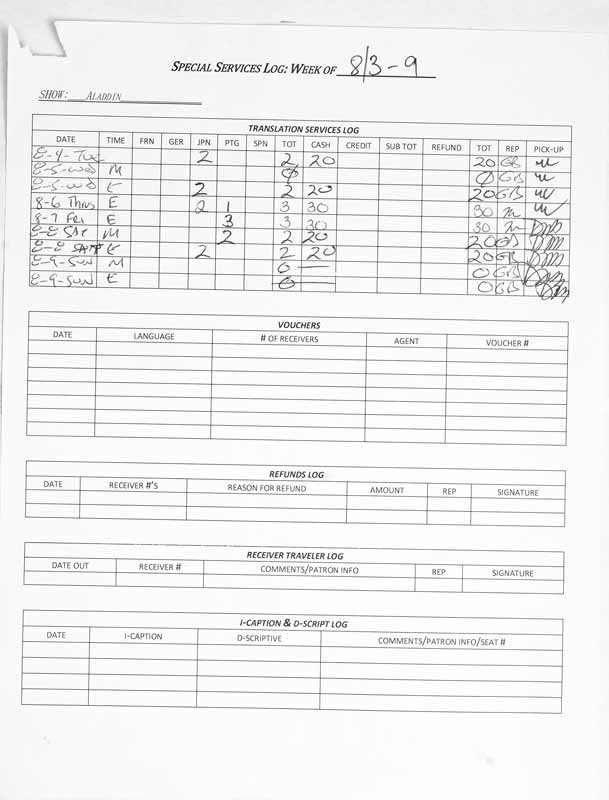 SPECIAL SERVICES LOG: WEEK OF 8/3-9
SHOW: ALADDIN
TRANSLATION SERVICES LOG
DATE TIME FRN GER JPN PTG SPN TOT CASH CREDIT SUB TOT REFUND TOT REP PICK-UP
8-4-Tue 2 2 20 20 GB
8-5-Wed M 0 0 GB
8-5-Wed E 2 2 20 20 GB
8-6 Thus E 2 1 3 30 30
8-7 Fri E 3 3 30 30
8-8 Sat M 2 2 20 20 GB
8-8 Sat E 2 2 20 20 GB
8-9-Sun M 0 — 0 GB
8-9-Sun E 0 — 0 GB
VOUCHERS
DATE LANGUAGE # OF RECEIVERS AGENT VOUCHER #
REFUNDS LOG
DATE RECEIVER #'S REASON FOR REFUND AMOUNT REP SIGNATURE
RECEIVER TRAVELER LOG
DATE OUT RECEIVER # COMMENTS/PATRON INFO REP SIGNATURE
I-CAPTION & D-SCRIPT LOG
DATE I-CAPTION D-SCRIPTIVE COMMENTS/PATRON INFO/SEAT #